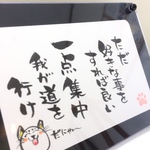 ただ
好きな事を
すれば良い
一点集中
我が道を
行け
だにゃ〜